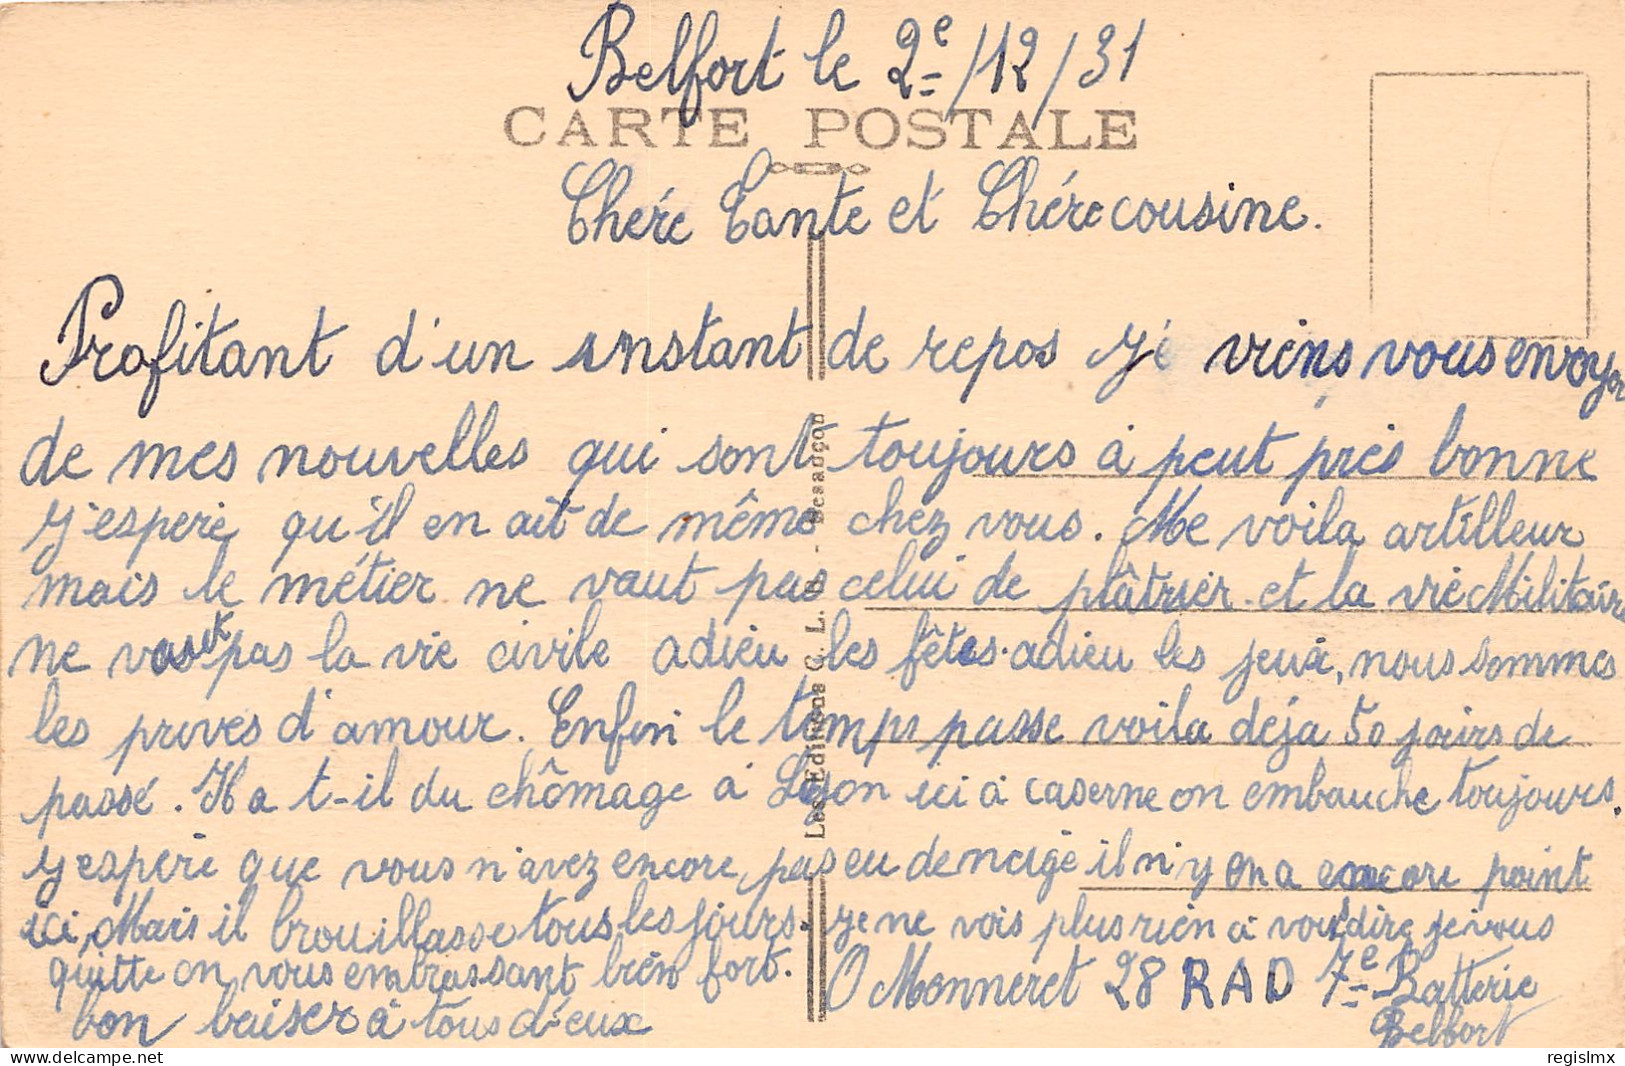 Belfort le 2e/12/31
CARTE POSTALE
Chére Tante et Chére cousine.
Profitant d'un instant de repos je viens vous envoyer
de mes nouvelles qui sont toujours à peut près bonne
j'espere qu'il en ait de même chez vous. Me voila artilleur
mais le métier ne vaut pas celui de plâtrier et la vie Militaire
ne vaut pas la vie civile adieu les fêtes. adieu les jeux, nous sommes
les privés d'amour. Enfin le temps passe voila déja 50 jours de
passé. Il a t-il du chômage à Lyon ici à caserne on embauche toujours.
j'espere que vous n'avez encore pas eu de neige il n'y en a encore point
ici, Mais il brouillasse tous les jours. je ne vois plus rien à vous dire je vous
quitte en vous embrassant bien fort. O Monneret 28 RAD 7e Batterie
bon baiser à tous d'eux Belfort
Les Editions C. L. B. - Besançon
regislmx